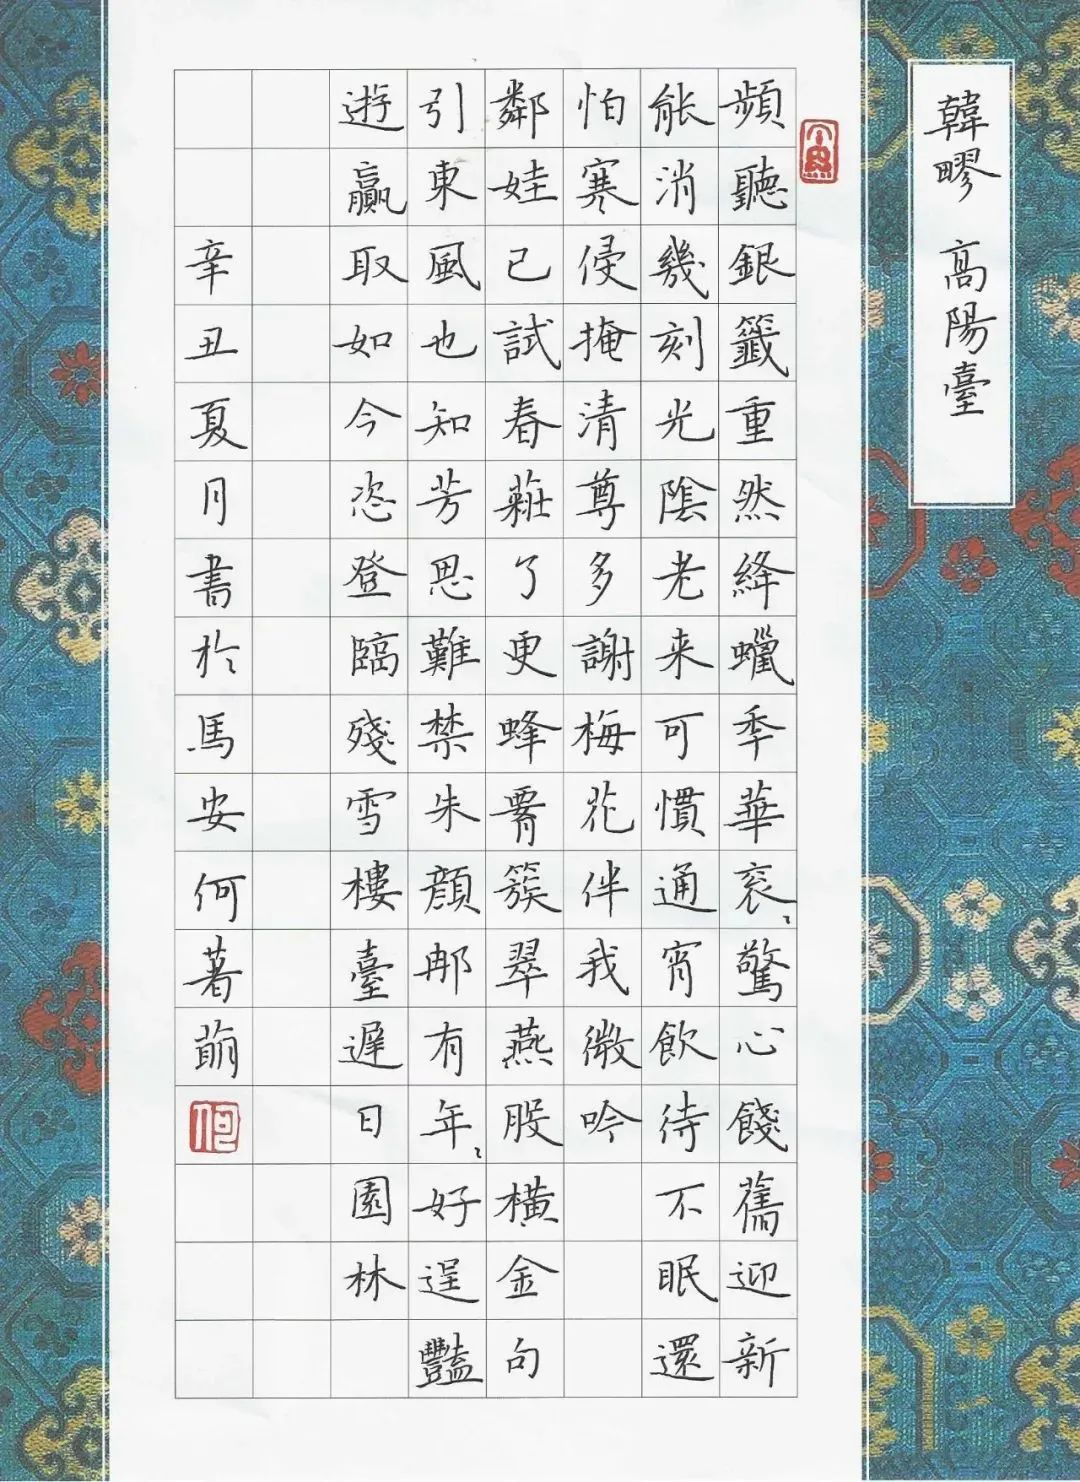 韓疁 高陽臺
頻聽銀籤重然絳蠟秊華衮〻驚心餞舊迎新
能消幾刻光陰老来可慣通宵飲待不眠還
怕寒侵掩清尊多謝梅花伴我微吟
鄰娃已試春粧了更蜂腰簇翠燕股橫金句
引東風也知芳思難禁朱顏那有年〻好逞豔
遊贏取如今恣登臨殘雪樓臺遲日園林
辛丑夏月書於馬安何著萌